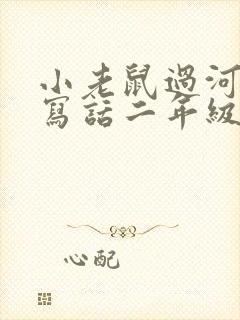 小老鼠過河
寫話二年級
心配